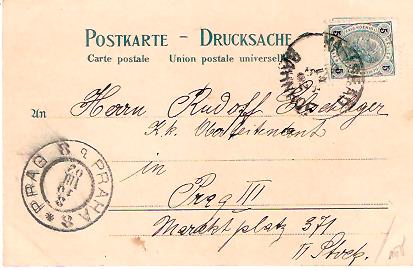 POSTKARTE - DRUCKSACHE
Carte postale Union postale universelle
5 5
5 5
BAHNHOF
An Herrn Rudolf
k.k. Oberleitenant
in
Prag III
Marckt platz 371
II Stock.
PRAG 8 a PRAHA 8